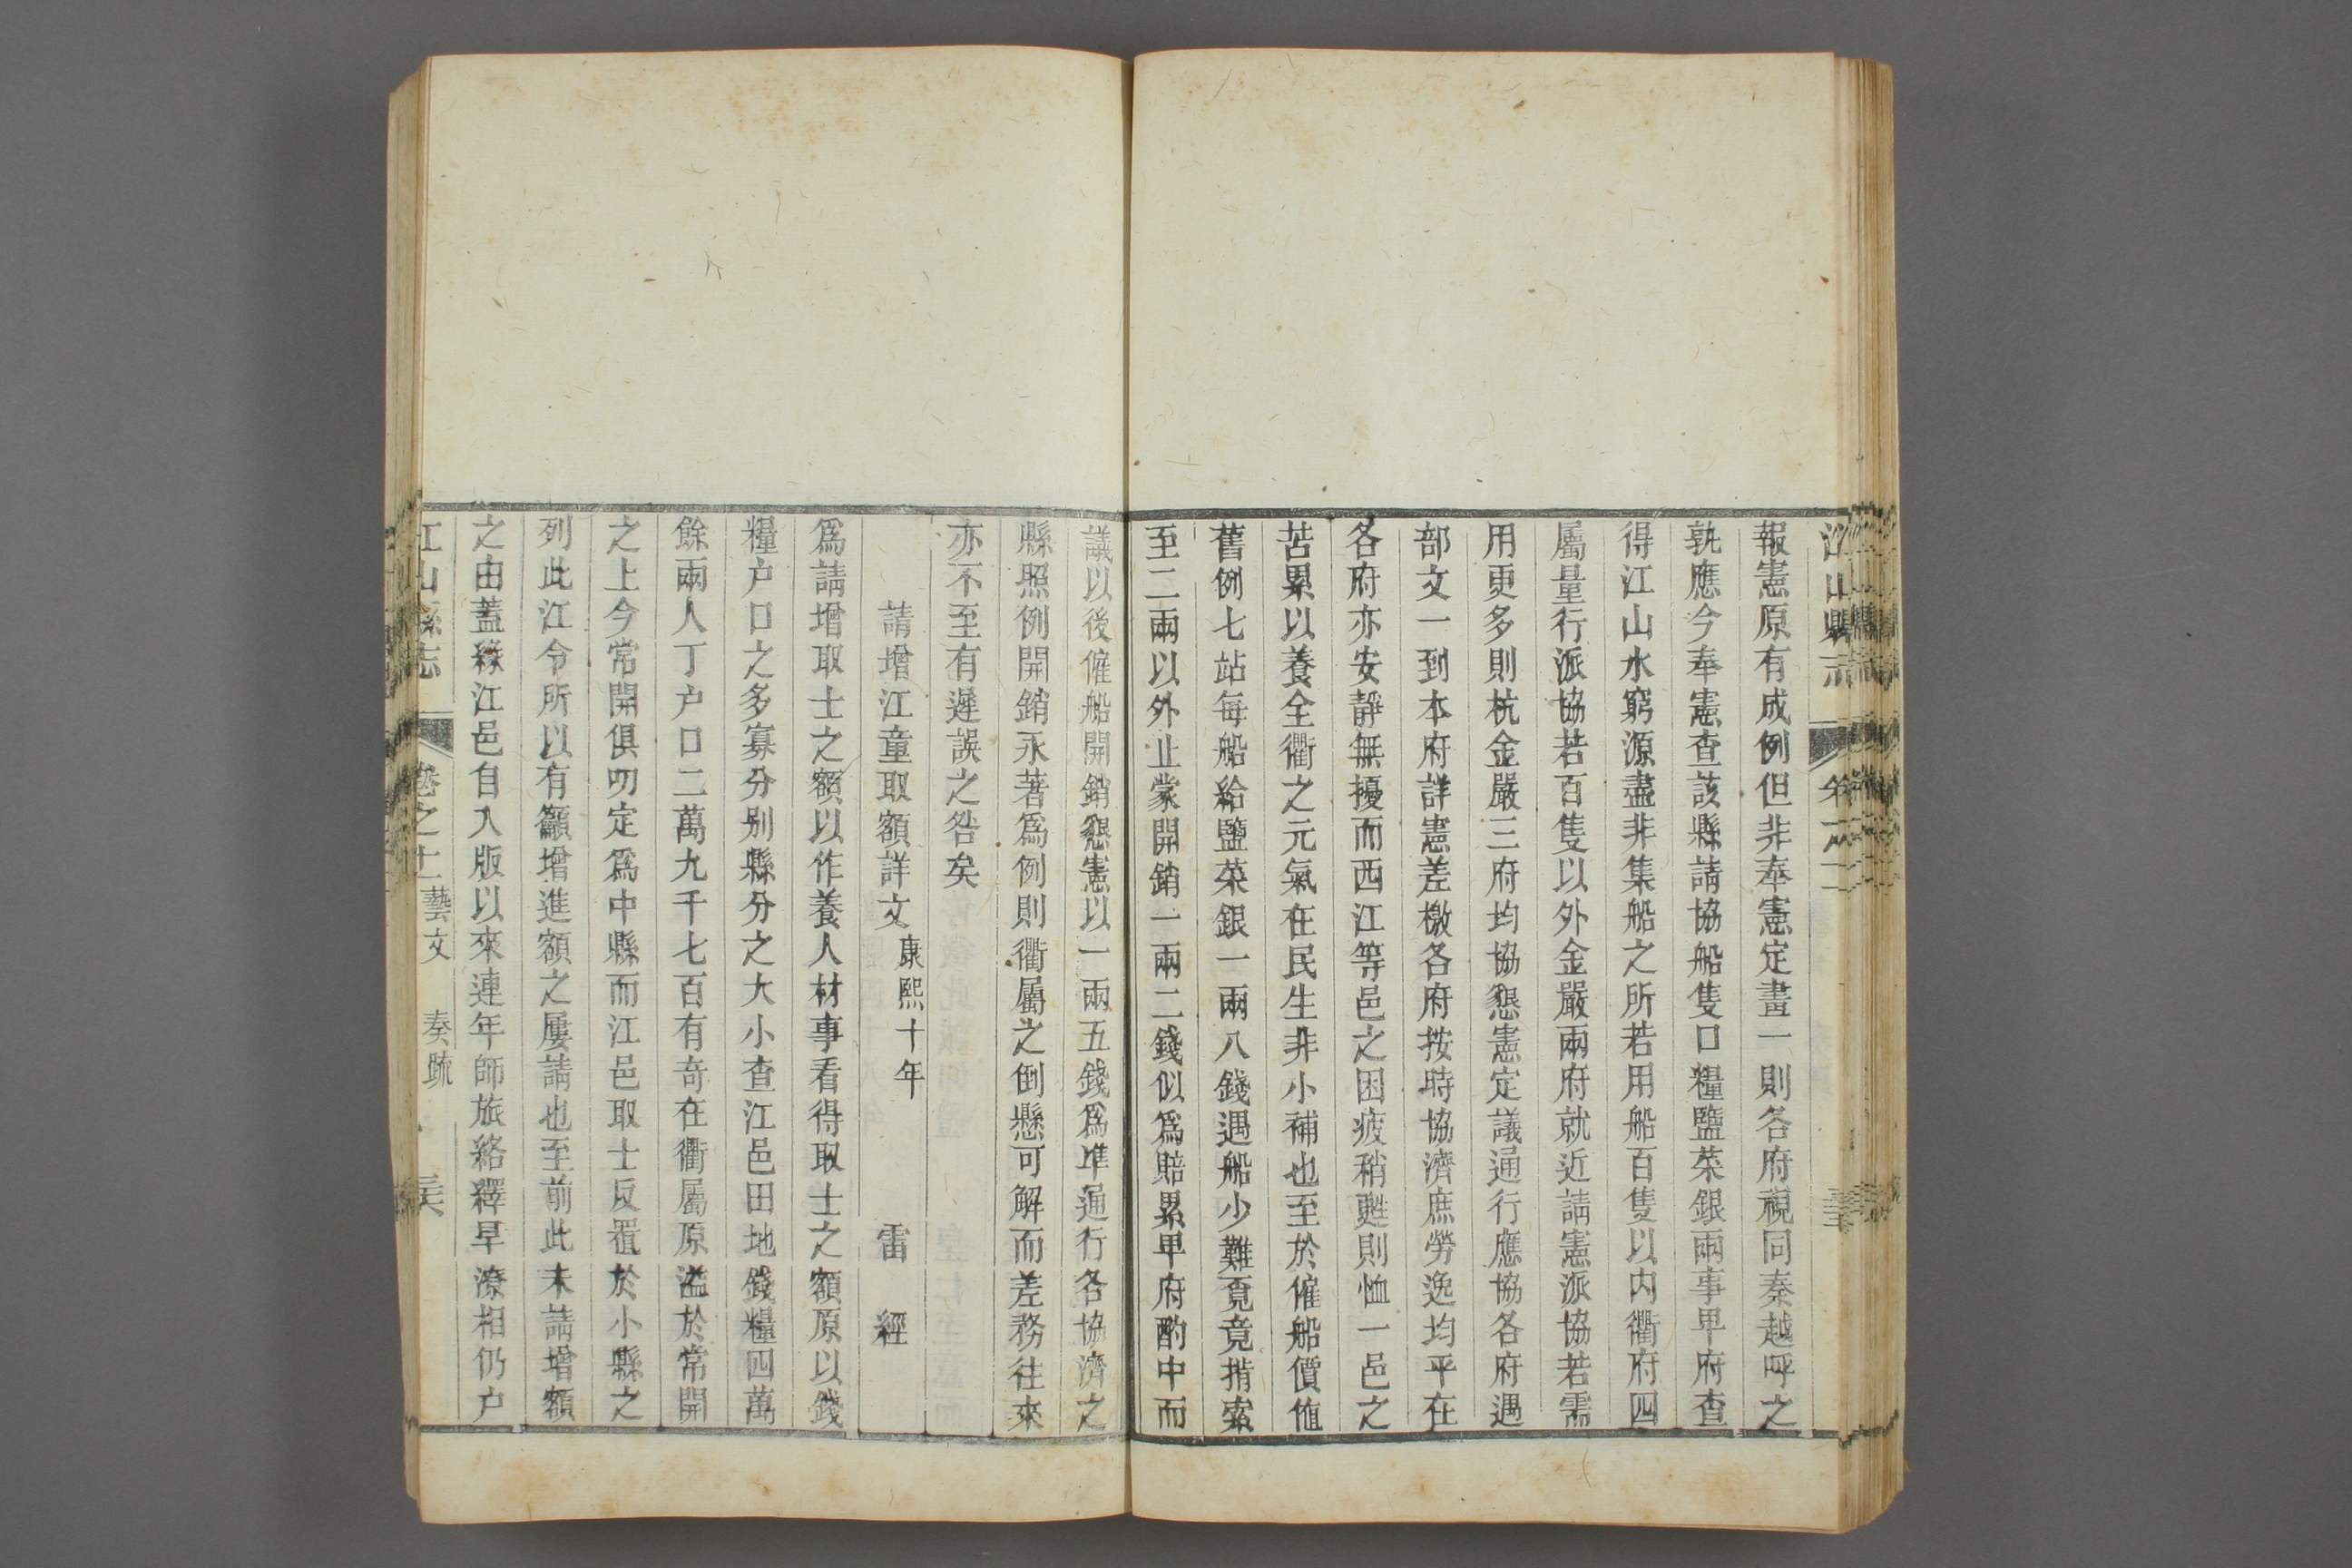 報憲原有成例但非奉憲定畫一則各府視同秦越呼之
孰應今奉憲查該縣請協船隻口糧鹽菜銀兩事甲府查
得江山水窮源盡非集船之所若用船百隻以内衢府四
屬量行派協若百隻以外金嚴兩府就近請憲派協若需
用更多則杭金嚴三府均協懇憲定議通行應協各府遇
部文一到本府詳憲差檄各府按時協濟庶勞逸均平在
各府亦安靜無擾而西江等邑之困疲稍甦則恤一邑之
苦累以養全衢之元氣在民生非小補也至於僱船價值
舊例七站每船給鹽菜銀一兩八錢遇船少難覔竟揹索
至二兩以外止蒙開銷一兩二錢似爲賠累甲府酌中而
議以後僱船開銷懇憲以一兩五錢爲凖通行各協濟之
縣照例開銷永著爲例則衢屬之倒懸可解而差務往來
亦不至有遲誤之咎矣
請增江童取額詳文康熙十年 雷 經
爲請增取士之額以作養人材事看得取士之額原以錢
糧户口之多寡分别縣分之大小查江邑田地錢糧四萬
餘兩人丁户口二萬九千七百有奇在衢屬原溢於常開
之上今常開俱叨定爲中縣而江邑取士反置於小縣之
列此江令所以有籲增進額之屢請也至前此未請增額
之由蓋緣江邑自入版以來連年師旅絡繹旱潦相仍户
江山縣志 卷之十 藝文 奏疏